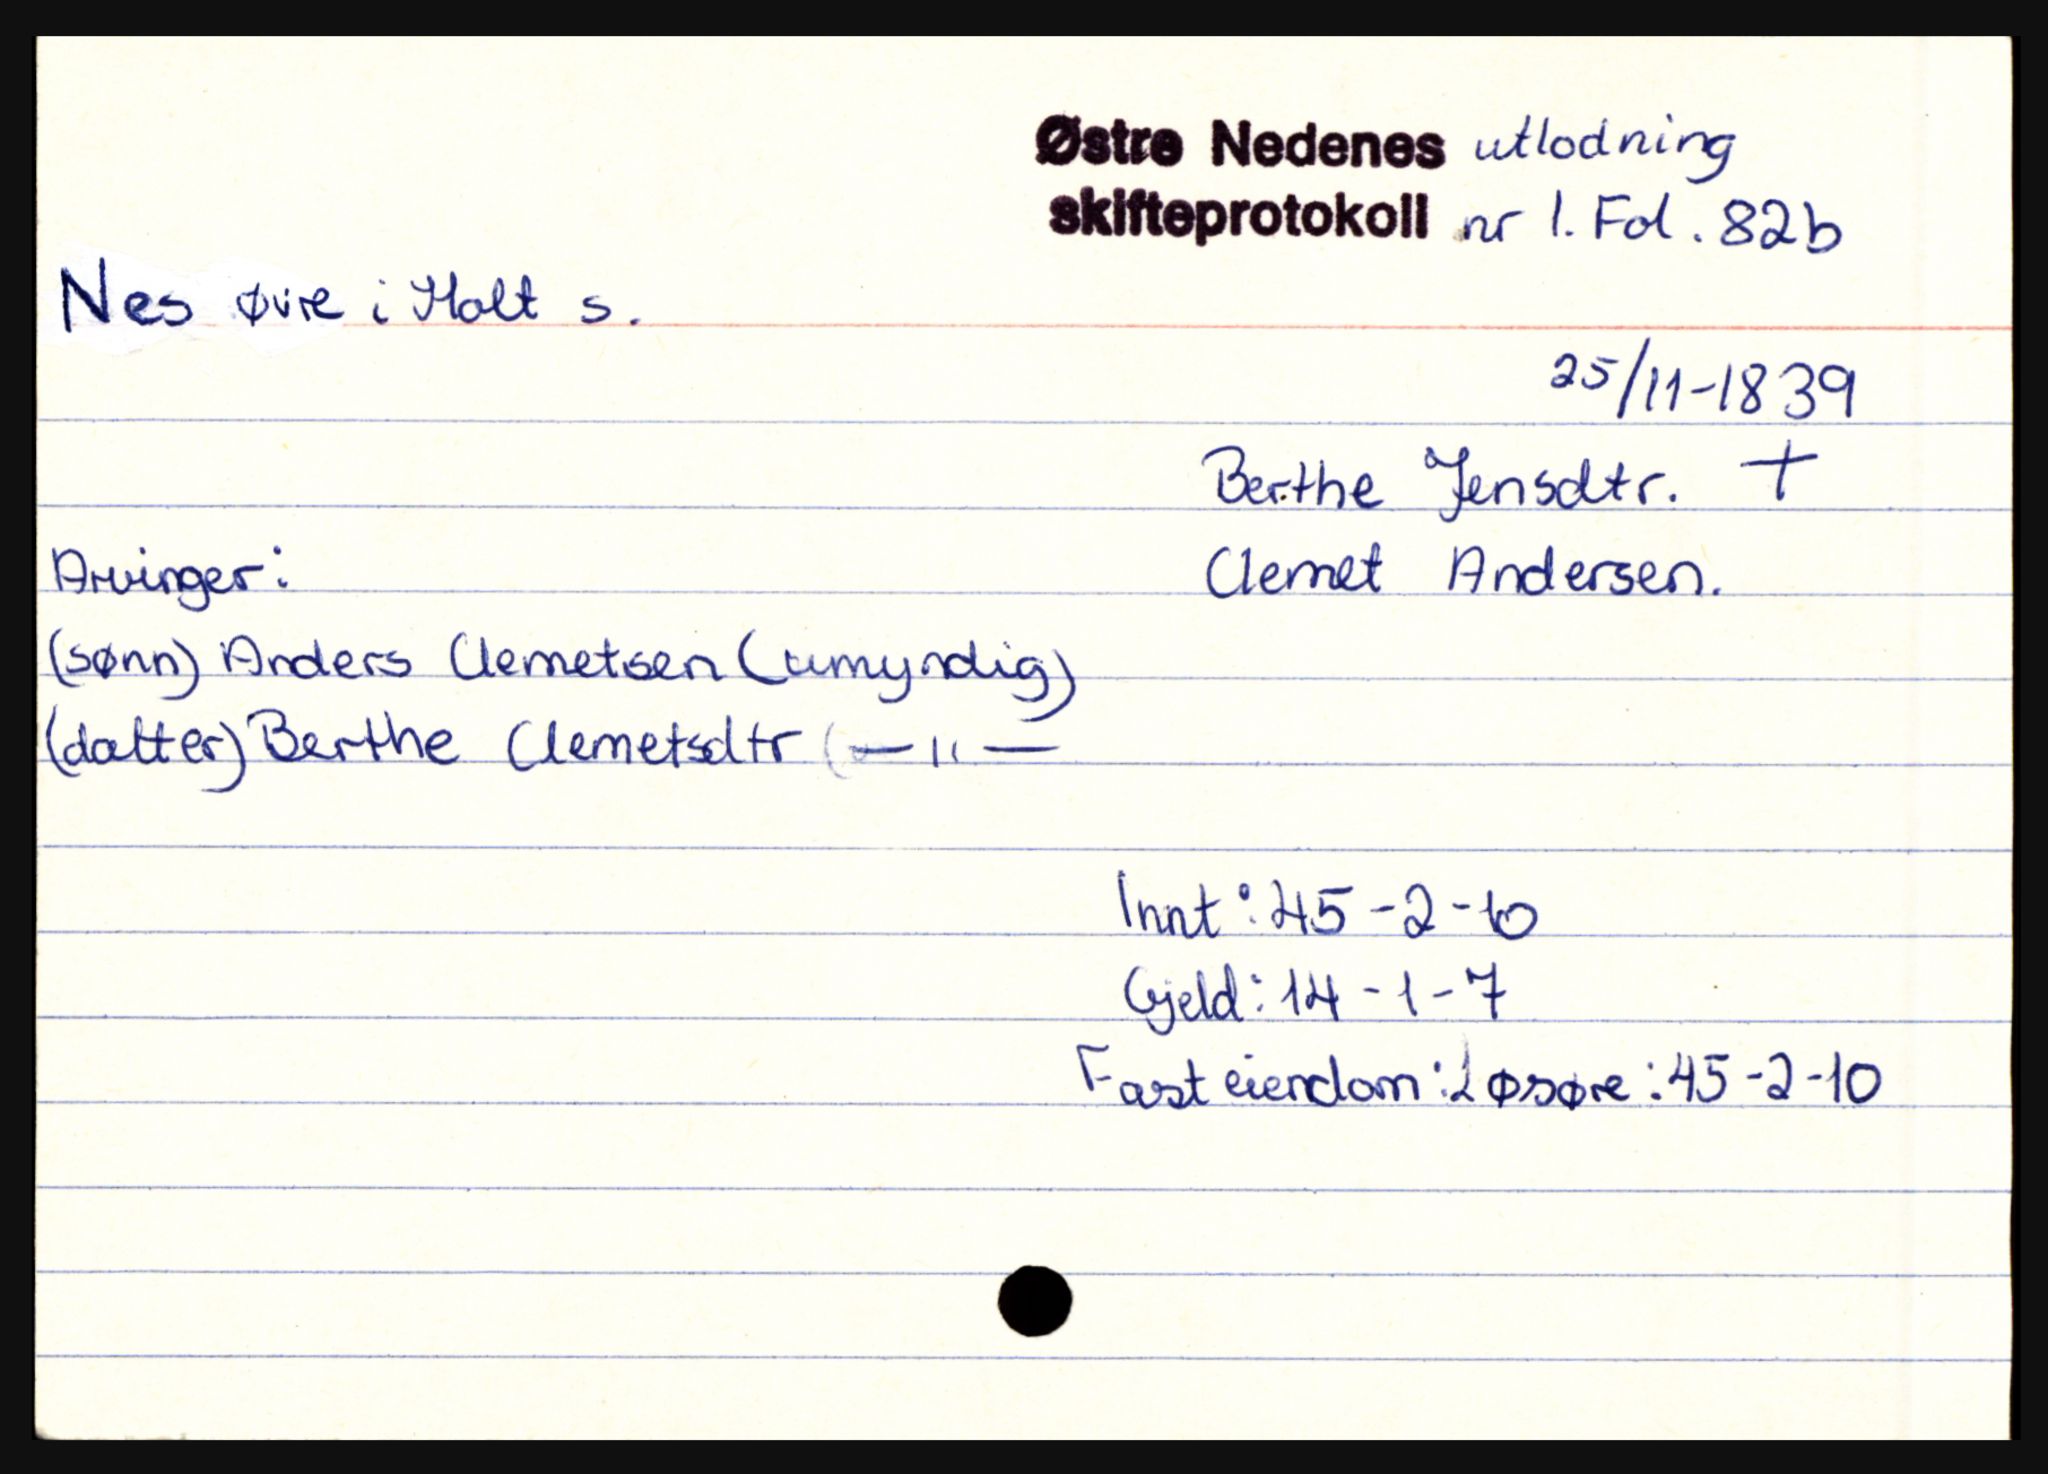 Østre Nedenes utlodning
skifteprotokoll nr 1. Fol. 82b
Nes øvre i Holt s.
25/11-1839
Berthe Jensdtr. +
Arvinger:
Clemet Andersen.
(sønn) Anders Clemetsen (umyndig)
(datter) Berthe Clemetsdtr (— " —
Innt: 45-2-10
Gjeld: 14-1-7
Fast eiendom: Løsøre: 45-2-10